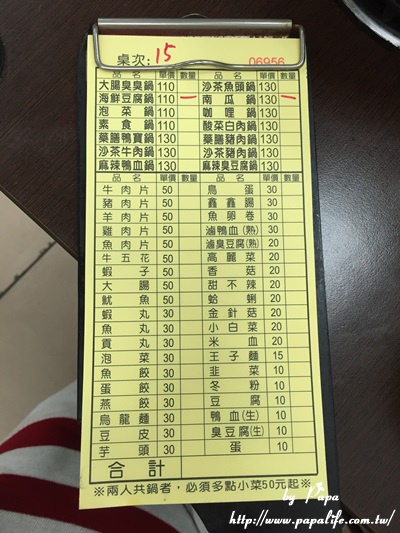 桌次: 15 06956
品名 單價 數量 品名 單價 數量
大腸臭臭鍋 110 沙茶魚頭鍋 130
海鮮豆腐鍋 110 一 南瓜鍋 130 一
泡菜鍋 110 咖哩鍋 130
素食鍋 110 酸菜白肉鍋 130
藥膳鴨寶鍋 130 藥膳豬肉鍋 130
沙茶牛肉鍋 130 沙茶豬肉鍋 130
麻辣鴨血鍋 130 麻辣臭豆腐鍋 130
品名 單價 數量 品名 單價 數量
牛肉片 50 鳥蛋 30
豬肉片 50 鑫鑫腸 30
羊肉片 50 魚卵卷 30
雞肉片 50 滷鴨血(熟) 30
魚肉片 50 滷臭豆腐(熟) 20
牛五花 50 高麗菜 20
蝦子 50 香菇 20
大腸 50 甜不辣 20
魷魚 50 蛤蜊 20
蝦丸 30 金針菇 20
魚丸 30 小白菜 20
貢丸 30 米血 20
泡菜 30 王子麵 15
魚餃 30 韭菜 10
蛋餃 30 冬粉 10
燕餃 30 豆腐 10
烏龍麵 30 鴨血(生) 10
豆皮 30 臭豆腐(生) 10
芋頭 30 蛋 10
合計
※兩人共鍋者,必須多點小菜50元起※
by Papa
http://www.papalife.com.tw/